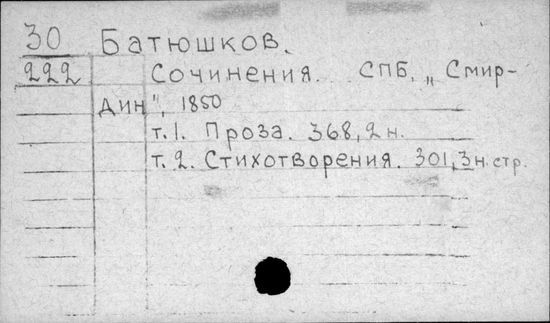 30 Батюшков.
222 Сочинения. СПБ, „Смир-
дин", 1850
т.1. Проза. 368,2н.
т.2. Стихотворения. 301,3н.стр.